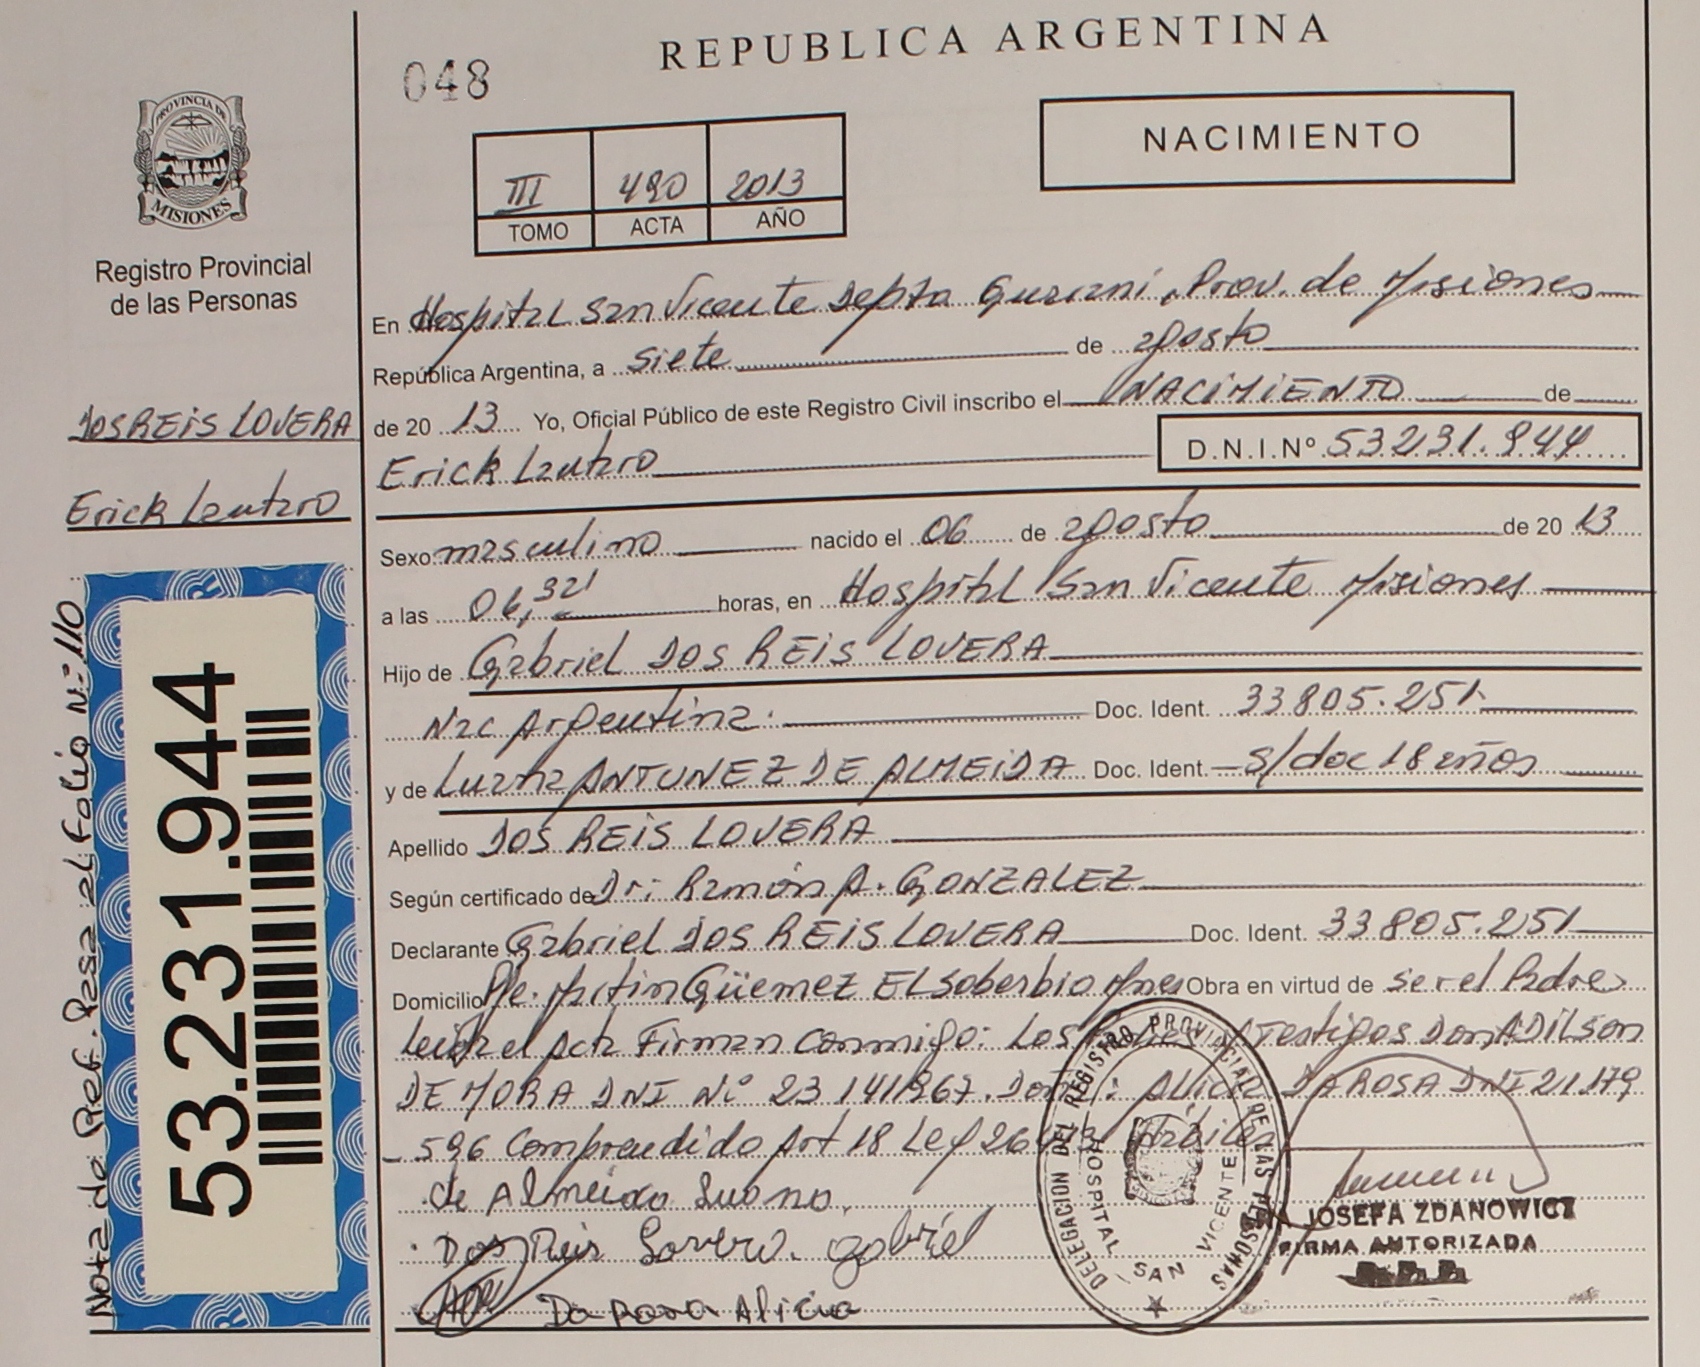 REPUBLICA ARGENTINA
048
NACIMIENTO
III 490 2013
TOMO ACTA AÑO
PROVINCIA DE
MISIONES
Registro Provincial
de las Personas
DOS REIS LOVERA
Erick Lautaro
Nota de Ref. Pasa al Folio Nº 110
53.231.944
En Hospital San Vicente Depto Guaraní, Prov. de Misiones
República Argentina, a siete de agosto
de 20 13 Yo, Oficial Público de este Registro Civil inscribo el NACIMIENTO de
Erick Lautaro D.N.I.Nº 53231.944
Sexo masculino nacido el 06 de agosto de 20 13
a las 06,32' horas, en Hospital San Vicente Misiones
Hijo de Gabriel DOS REIS LOVERA
Nac Argentina. Doc. Ident. 33805.251
y de ANTUNEZ DE ALMEIDA Doc. Ident. s/doc 18 años
Apellido DOS REIS LOVERA
Según certificado de Dr: Ramón A. GONZALEZ
Declarante Gabriel DOS REIS LOVERA Doc. Ident. 33805.251
Domicilio Güemez El Soberbio Mnes Obra en virtud de ser el Padre
Leida el Acta Firman conmigo: Los Testigos Don ADILSON
DE MORA DNI Nº 23 141967. DA ROSA DNI 21.179
- 596 Comprendido Art 18 Ley
de Almeida
Dos Reis Lovera. gabriel
Da Rosa Alicia
DELEGACION DEL REGISTRO PROVINCIAL DE LAS PERSONAS
HOSPITAL SAN VICENTE
JOSEFA ZDANOWICZ
FIRMA AUTORIZADA